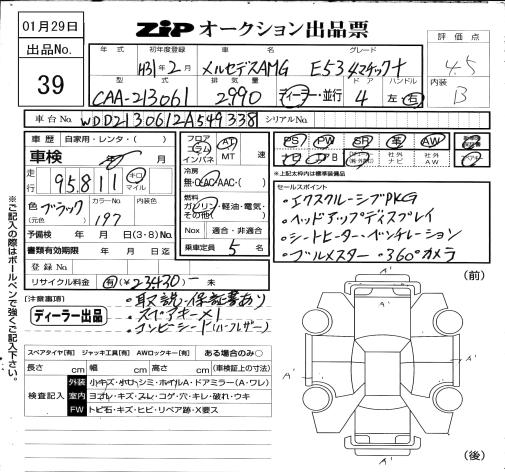 01月29日
ZIP オークション出品票
出品No.
39
年式 初年度登録 車名 グレード
H31年2月 メルセデスAMG E53 4マチック+
型式 排気量 ドア ハンドル
CAA-213061 2990 ディーラー・並行 4 左 右
評価点
4.5
内装
B
車台No. WDD2130612A549338 シリアルNo.
車歴 自家用・レンタ・( )
車検 年 月
走行 95,811 キロ マイル
色 ブラック カラーNo. 197 内装色
(元色)
予備検 年 月 日(3・8)No.
書類有効期限 年 月 日迄
登録No.
リサイクル料金 有(¥23430-) 未
フロア コラム インパネ AT MT 速
冷房
無・C・AC・AAC・( )
燃料
ガソリン・軽油・電気・その他( )
Nox 適合・非適合
乗車定員 5 名
PS PW SR 革 AW
社外ナビ 社外AW
*上記太枠内は標準装備品
セールスポイント
・エクスクルーシブPKG
・ヘッドアップディスプレイ
・シートヒーター・ベンチレーション
・ブルメスター・360°カメラ
[注意事項]
ディーラー出品
・取説・保証書あり
・スペアキー×1
・コンビシート(ハーフレザー)
スペアタイヤ[有] ジャッキ工具[有] AWロックキー[有] ある場合のみ○
長さ cm 幅 cm 高さ cm (車検証上の寸法)
検査記入
外装 小キズ・小凹・シミ・ホイルA・ドアミラー(A・ワレ)
室内 ヨゴレ・キズ・スレ・コゲ・穴・キレ・破れ・ウキ
FW トビ石・キズ・ヒビ・リペア跡・X要ス
※ご記入の際はボールペンで強くご記入下さい。
(前)
A'
A'
A'
A'
(後)